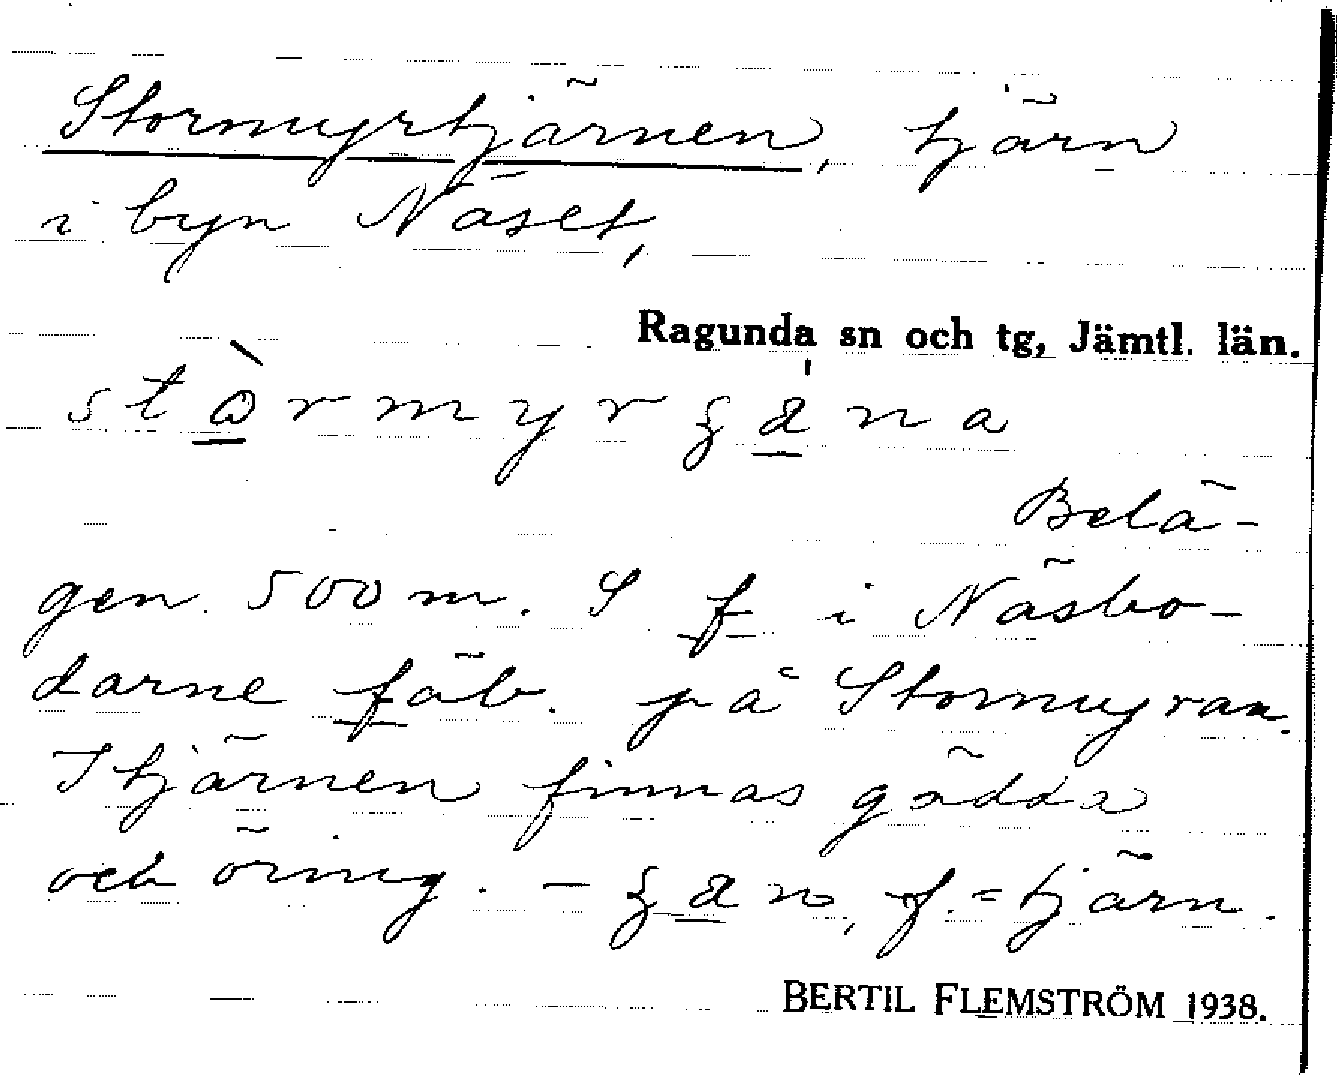 Stormyrtjärnen, tjärn
i byn Näset,
Ragunda sn och tg, Jämtl. län.
Belä-
gen 500 m. S f i Näsbo-
darne fäb. på Stormyran.
I tjärnen finnas gädda
och öring. — f. = tjärn.
BERTIL FLEMSTRÖM 1938.